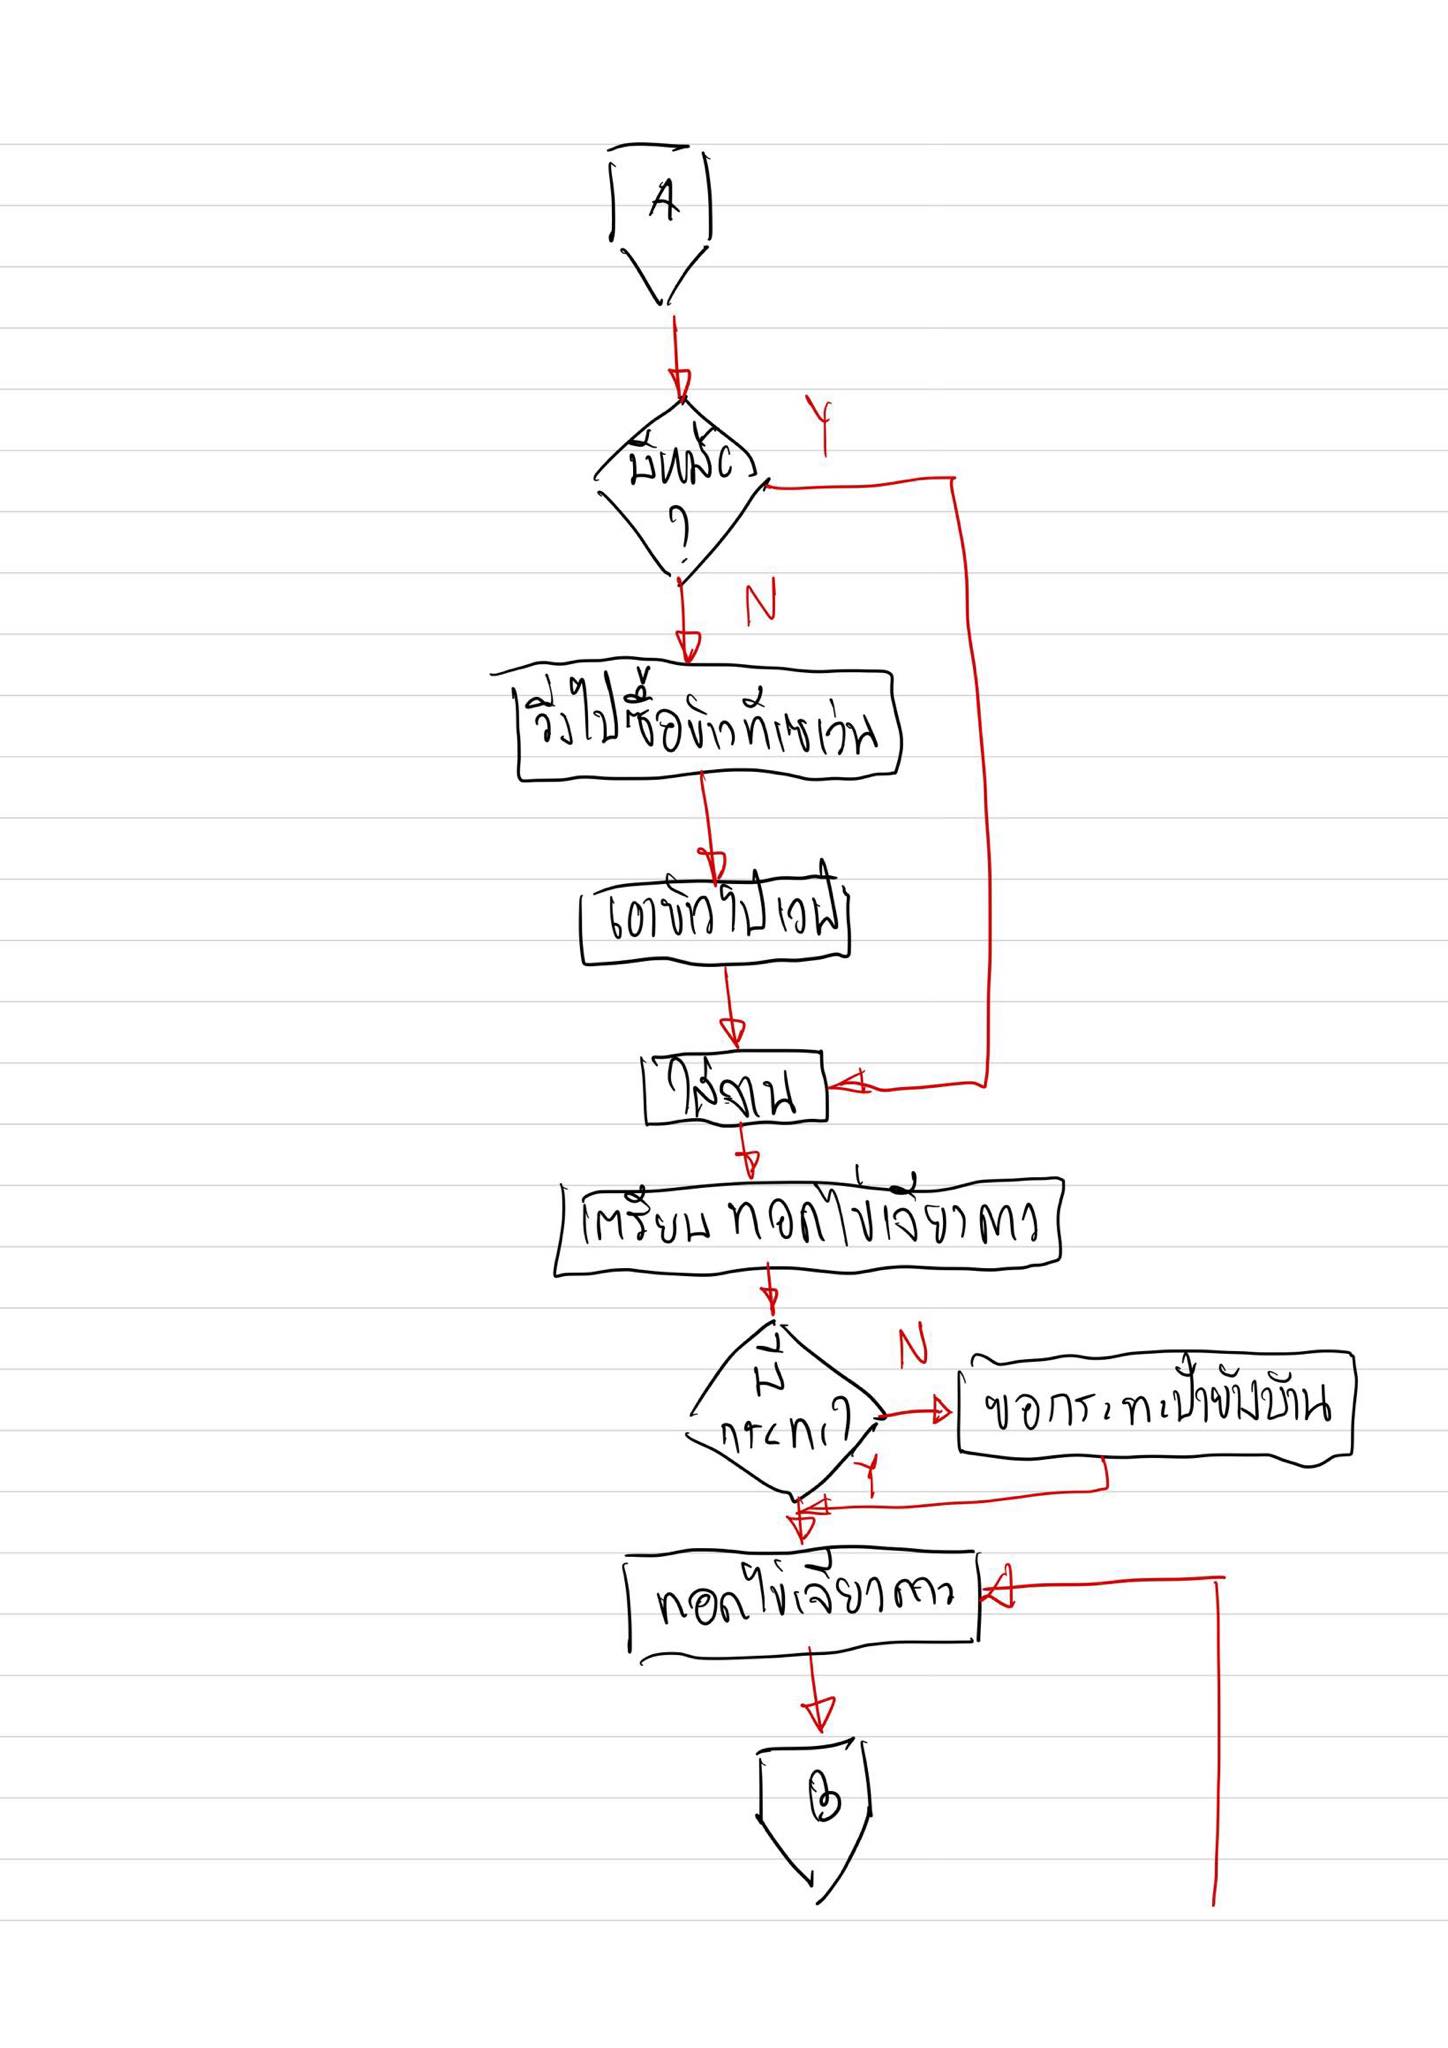 A
มีหม้อ
?
Y
N
วิ่งไปซื้อข้าวที่เซเว่น
เอาข้าวไปเวฟ
ใส่จาน
เตรียม ทอดไข่เจียวดาว
มี
กระทะ?
N
ขอกระทะป้าข้างบ้าน
Y
ทอดไข่เจียวดาว
B